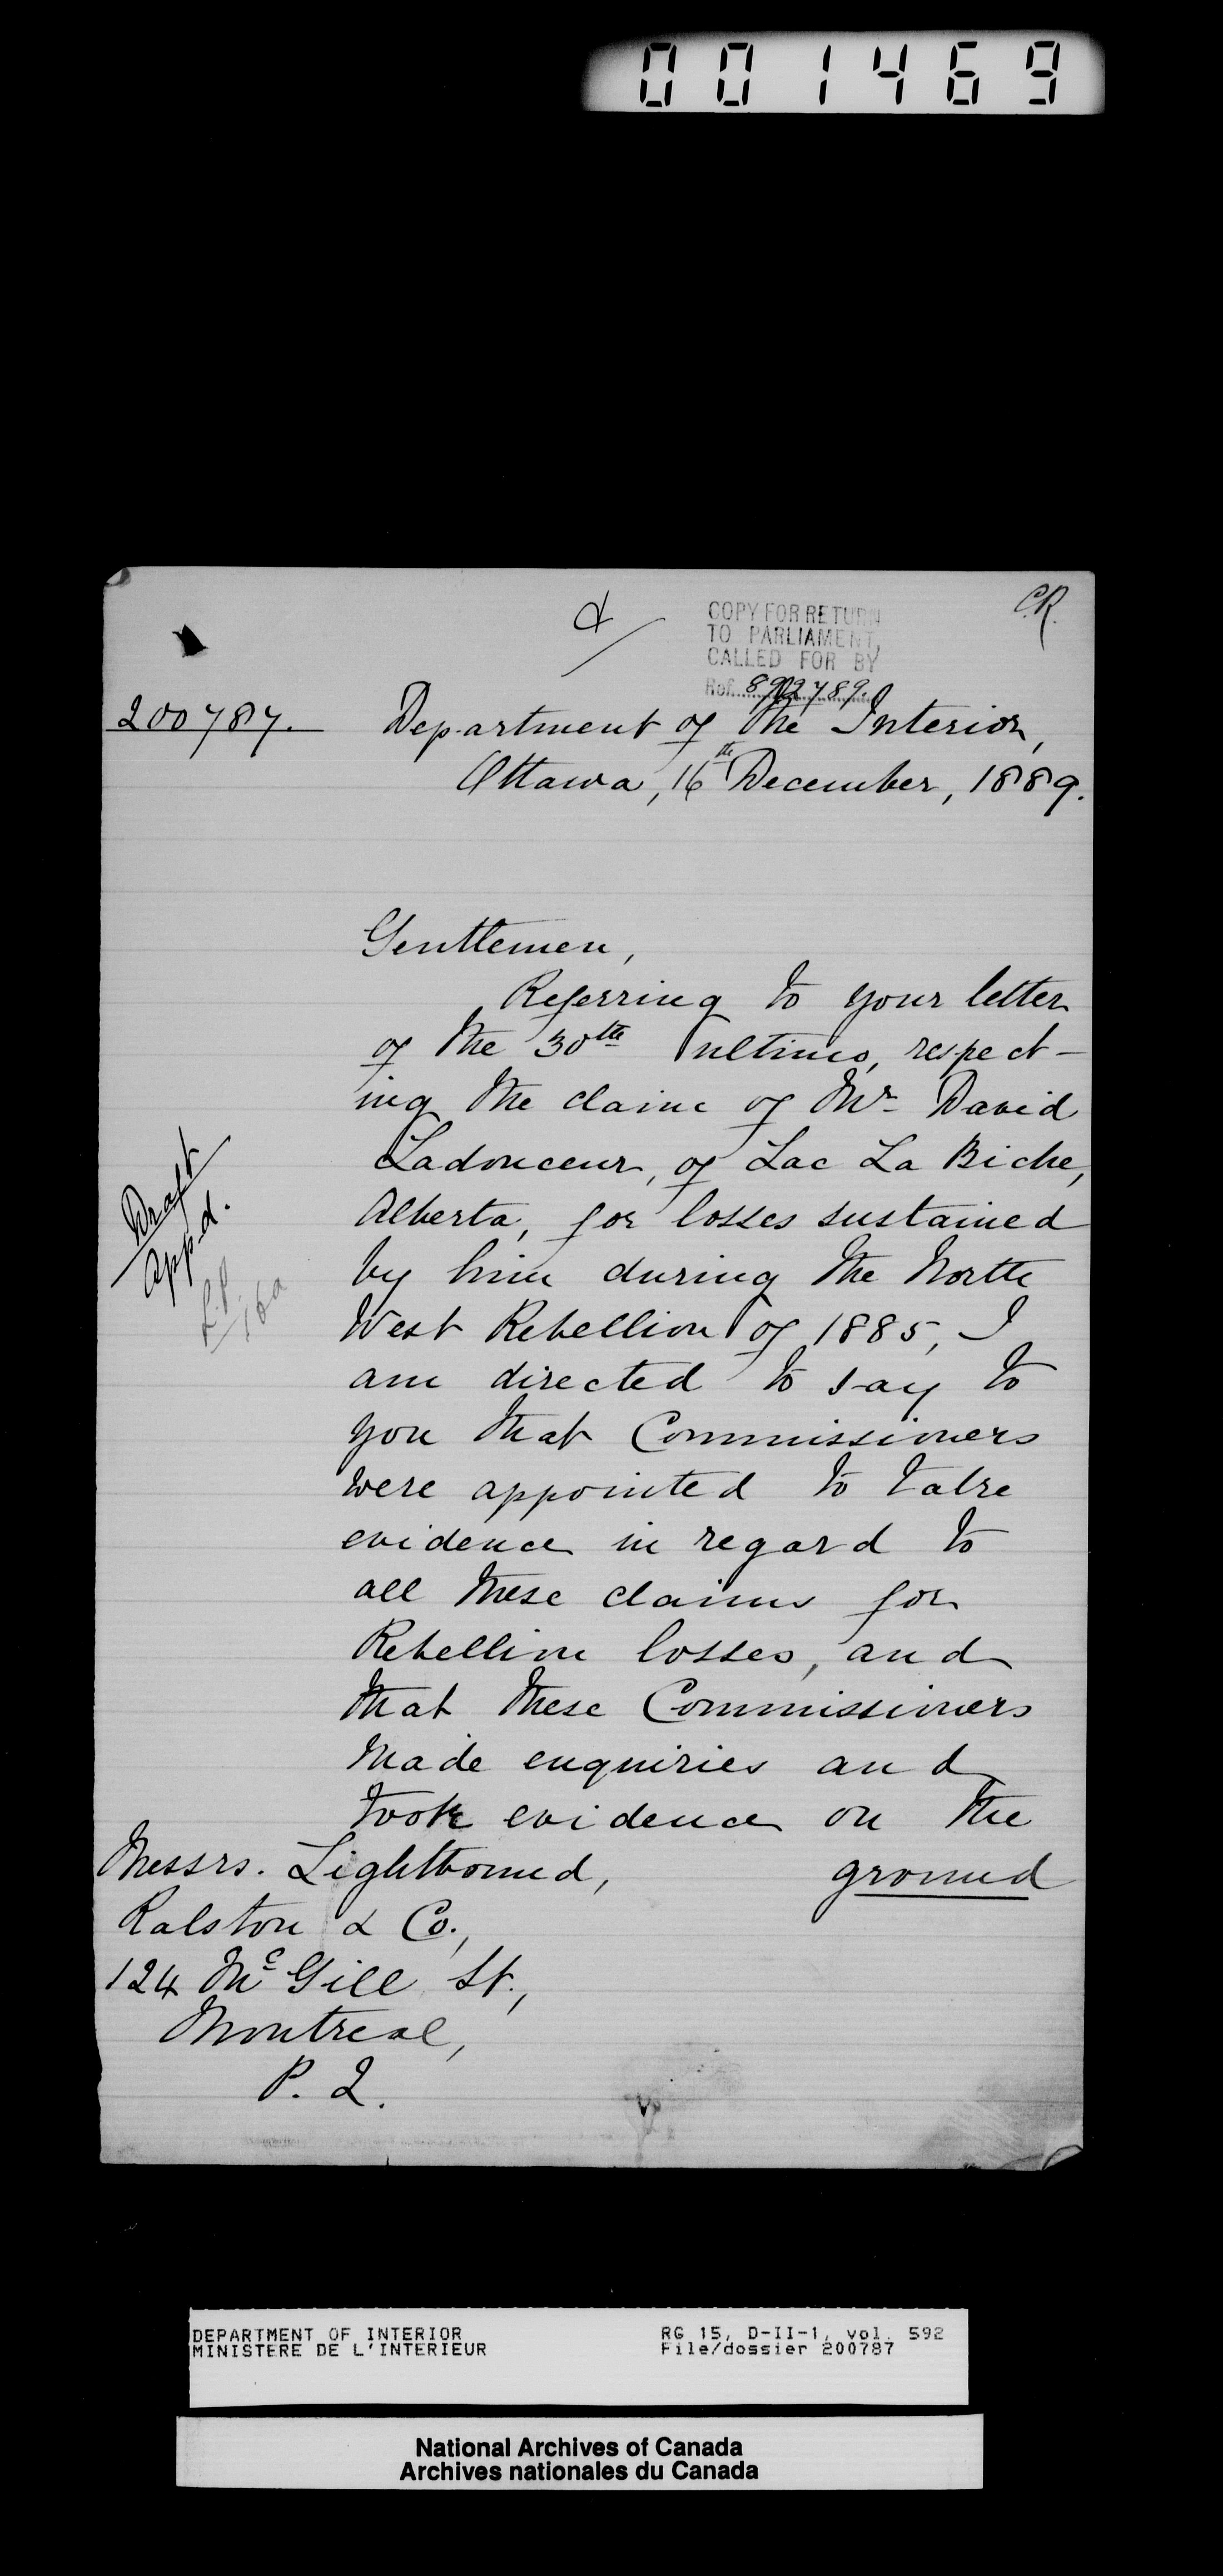 001469
C.R.
COPY FOR RETURN
TO PARLIAMENT,
CALLED FOR BY
Ref.
200787. Department of the Interior,
Ottawa, 16th December, 1889.
Gentlemen,
Referring to your letter
of the 30th ultimo, respect-
ing the claim of Mr. David
Ladouceur, of Lac La Biche,
Alberta, for losses sustained
by him during the North
West Rebellion of 1885, I
am directed to say to
you that Commissioners
were appointed to take
evidence in regard to
all these claims for
Rebellion losses, and
that these Commissioners
made enquiries and
took evidence on the
ground
Draft
app'd.
Messrs. Lightbound,
Ralston & Co.,
124 McGill St.,
Montreal,
P. Q.
DEPARTMENT OF INTERIOR
MINISTERE DE L'INTERIEUR
RG 15, D-II-1, vol. 592
File/dossier 200787
National Archives of Canada
Archives nationales du Canada